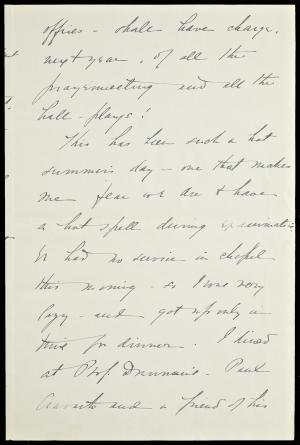 offices - shall have charge,
next year, of all the
prayermeeting and all the
hall - plays!
This has been such a hot
summers day - one that makes
me fear we are to have
a hot spell during examinati-
We had no service in chapel
this morning - so I was very
lazy - and got up only in
time for dinner. I dined
at Prof. Paul
and a friend of his